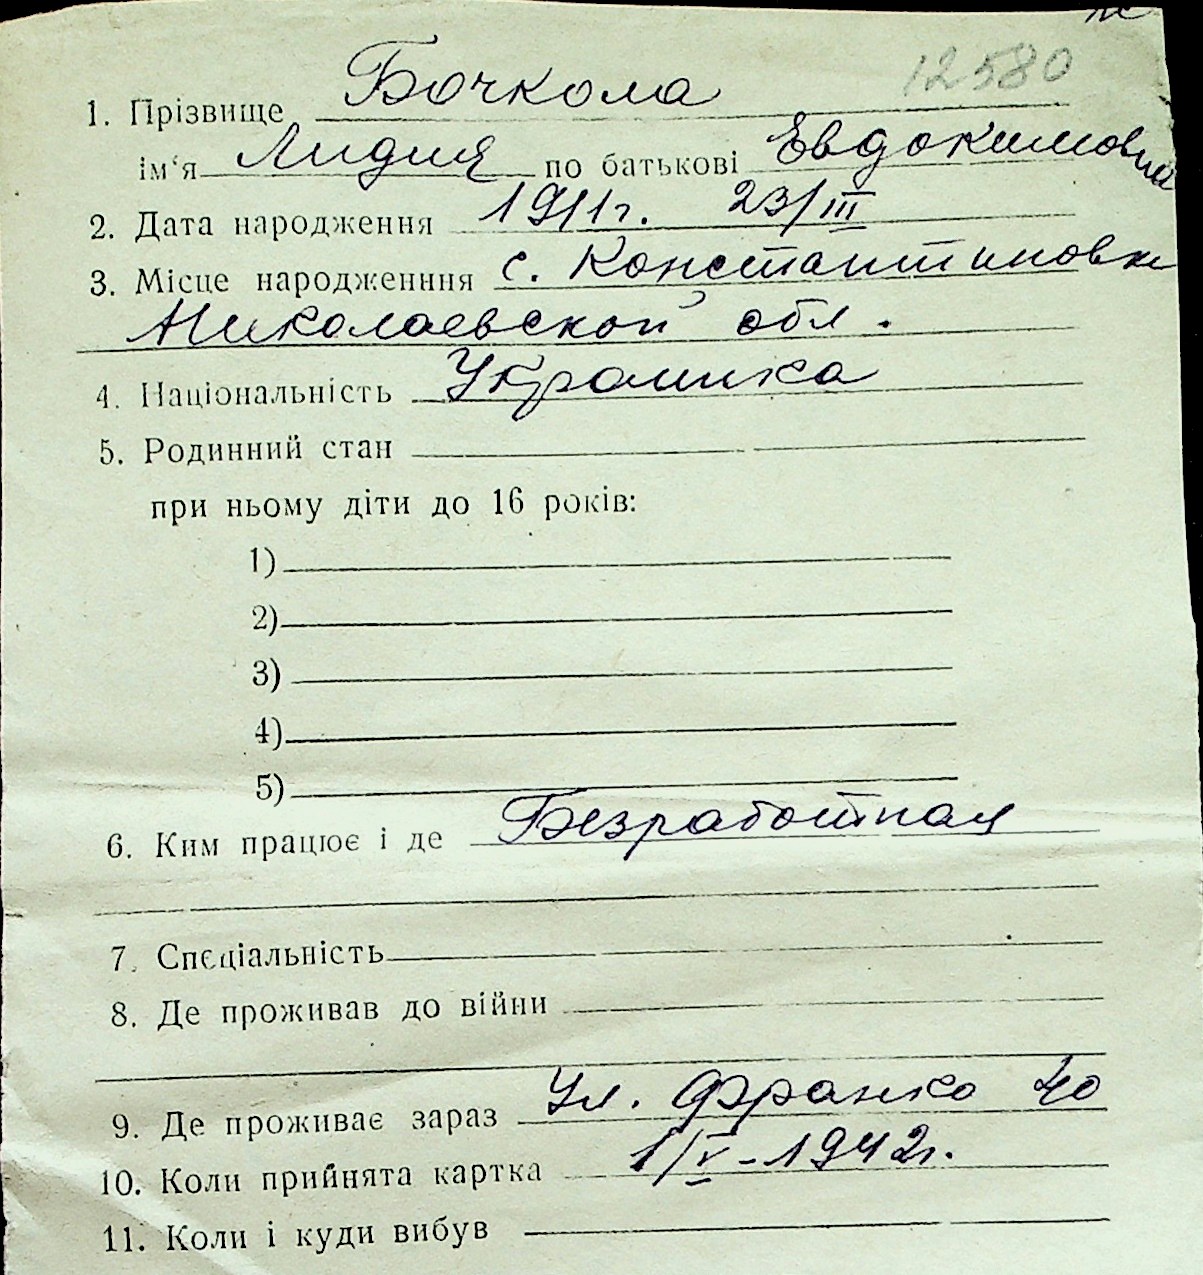 12580
1. Прізвище Бочкола
ім‘я Лидия по батькові Евдокимовна
2. Дата народження 1911г. 23/III
3. Місце народженння с. Константиновки
Николаевской обл.
4. Національність Украинка
5. Родинний стан
при ньому діти до 16 років:
1)
2)
3)
4)
5)
6. Ким працює і де Безработная
7. Спєціальність
8. Де проживав до війни
9. Де проживає зараз Ул. Франко 40
10. Коли прийнята картка 1/V-1942г.
11. Коли і куди вибув